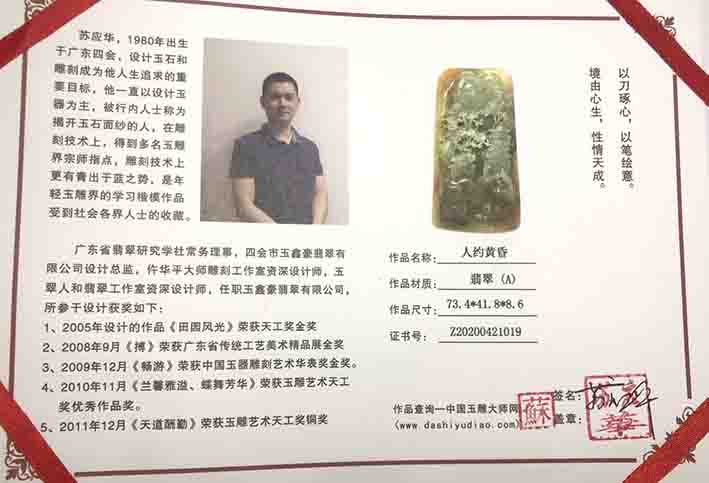 苏应华，1980年出生
于广东四会，设计玉石和
雕刻成为他人生追求的重
要目标，他一直以设计玉
器为主，被行内人士称为
揭开玉石面纱的人，在雕
刻技术上，得到多名玉雕
界宗师指点，雕刻技术上
更有青出于蓝之势，是年
轻玉雕界的学习楷模作品
受到社会各界人士的收藏。
以刀琢心，以笔绘意。
境由心生，性情天成。
广东省翡翠研究学社常务理事，四会市玉鑫豪翡翠有
限公司设计总监，仵华平大师雕刻工作室资深设计师，玉
翠人和翡翠工作室资深设计师，任职玉鑫豪翡翠有限公司，
所参于设计获奖如下：
1、2005年设计的作品《田园风光》荣获天工奖金奖
2、2008年9月《搏》荣获广东省传统工艺美术精品展金奖
3、2009年12月《畅游》荣获中国玉器雕刻艺术华表奖金奖。
4、2010年11月《兰馨雅溢、蝶舞芳华》荣获玉雕艺术天工
奖优秀作品奖。
5、2011年12月《天道酬勤》荣获玉雕艺术天工奖铜奖
作品名称：人约黄昏
作品材质：翡翠（A）
作品尺寸：73.4*41.8*8.6
证书号：Z20200421019
作品查询—中国玉雕大师网
(www.dashiyudiao.com)
蘇
签名：
盖章：
華